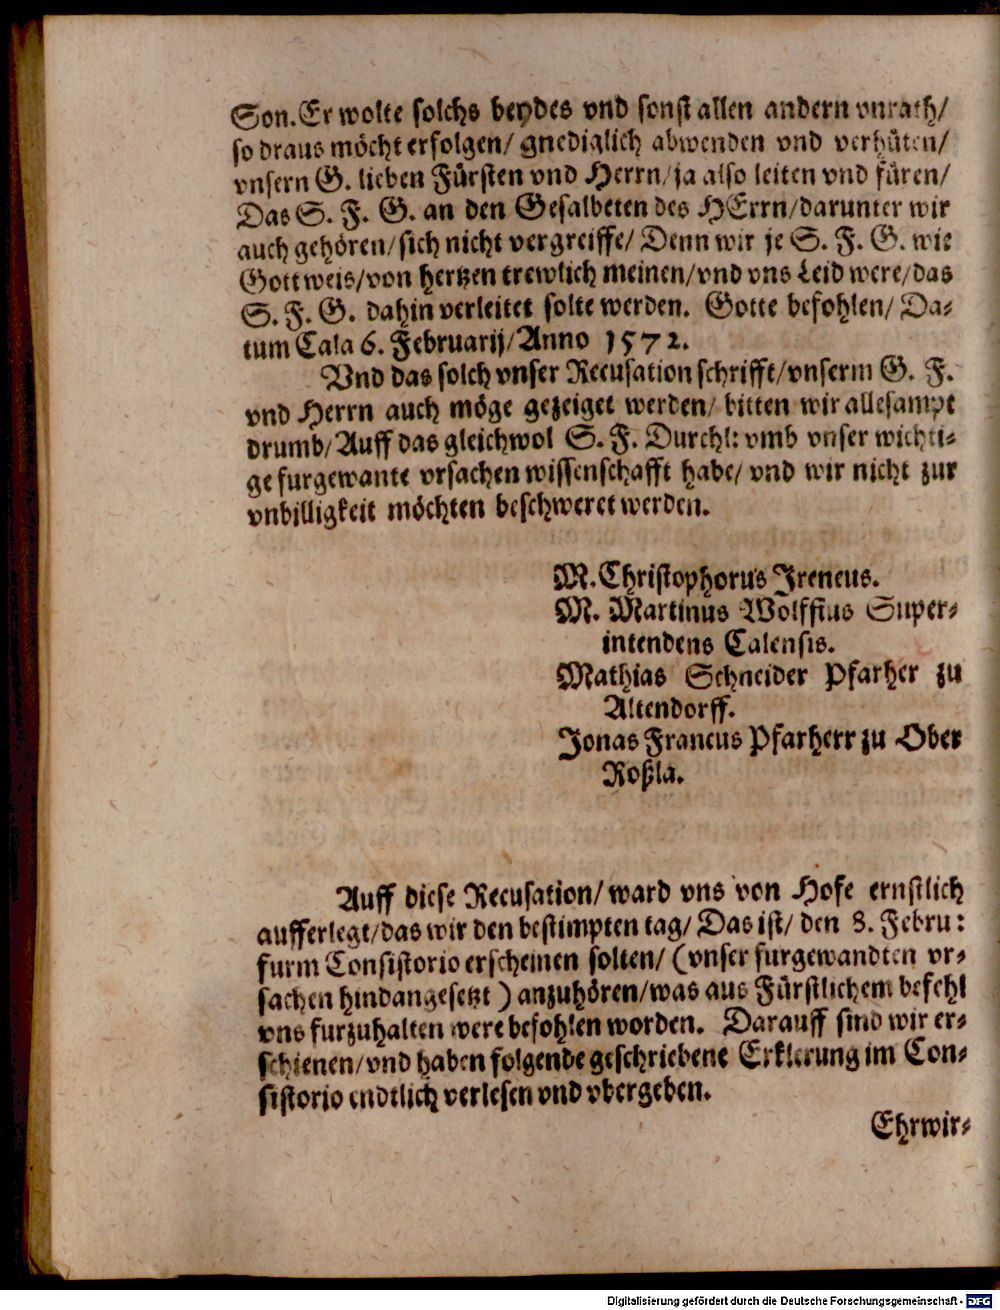 Son. Er wolte solchs beydes vnd sonst allen andern vnrath/
so draus möcht erfolgen/ gnediglich abwenden vnd verhüten/
vnsern G. lieben Fürsten vnd Herrn/ ja also leiten vnd füren/
Das S. F. G. an den Gesalbeten des HErrn/ darunter wir
auch gehören/ sich nicht vergreiffe/ Denn wir je S. F. G. wie
Gott weis/ von hertzen trewlich meinen/ vnd vns Leid were/ das
S. F. G. dahin verleitet solte werden. Gotte befohlen/ Da-
tum Cala 6. Februarij/ Anno 1572.
Vnd das solch vnser Recusation schrifft/ vnserm G. F.
vnd Herrn auch möge gezeiget werden/ bitten wir allesampt
drumb/ Auff das gleichwol S. F. Durchl: vmb vnser wichti-
ge furgewante vrsachen wissenschafft habe/ vnd wir nicht zur
vnbilligkeit möchten beschweret werden.
M. Christophorus Ireneus.
M. Martinus Wolffius Super-
intendens Calensis.
Mathias Schneider Pfarher zu
Altendorff.
Jonas Francus Pfarherr zu Ober
Roßla.
Auff diese Recusation/ ward vns von Hofe ernstlich
aufferlegt/ das wir den bestimpten tag/ Das ist/ den 8. Febru:
furm Consistorio erscheinen solten/ (vnser furgewandten vr-
sachen hindangesetzt) anzuhören/ was aus Fürstlichem befehl
vns furzuhalten were befohlen worden. Darauff sind wir er-
schienen/ vnd haben folgende geschriebene Erklerung im Con-
sistorio endtlich verlesen vnd vbergeben.
Ehrwir-
Digitalisierung gefördert durch die Deutsche Forschungsgemeinschaft - DFG